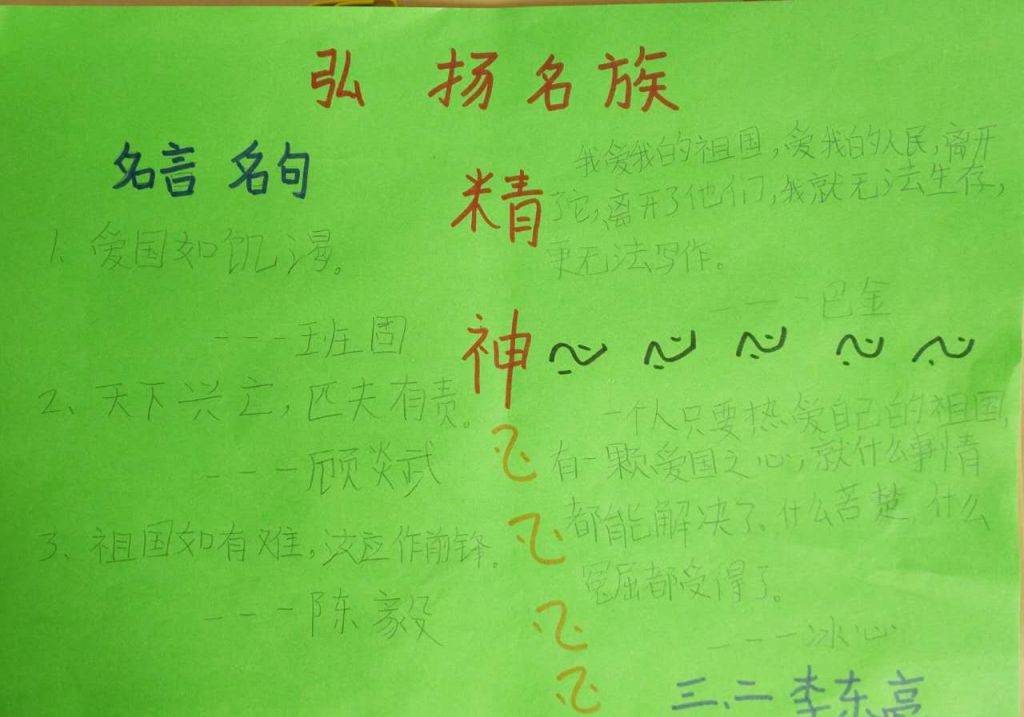 弘扬名族
精
神
名言 名句
1、爱国如饥渴。
---班固
2、天下兴亡，匹夫有责。
---顾炎武
3、祖国如有难，汝应作前锋。
---陈毅
我爱我的祖国，爱我的人民，离开
了它，离开了他们，我就无法生存，
更无法写作。
---巴金
一个人只要热爱自己的祖国，
有一颗爱国之心，就什么事情
都能解决了、什么苦楚，什么
冤屈都受得了。
---冰心
三、二 李东亭